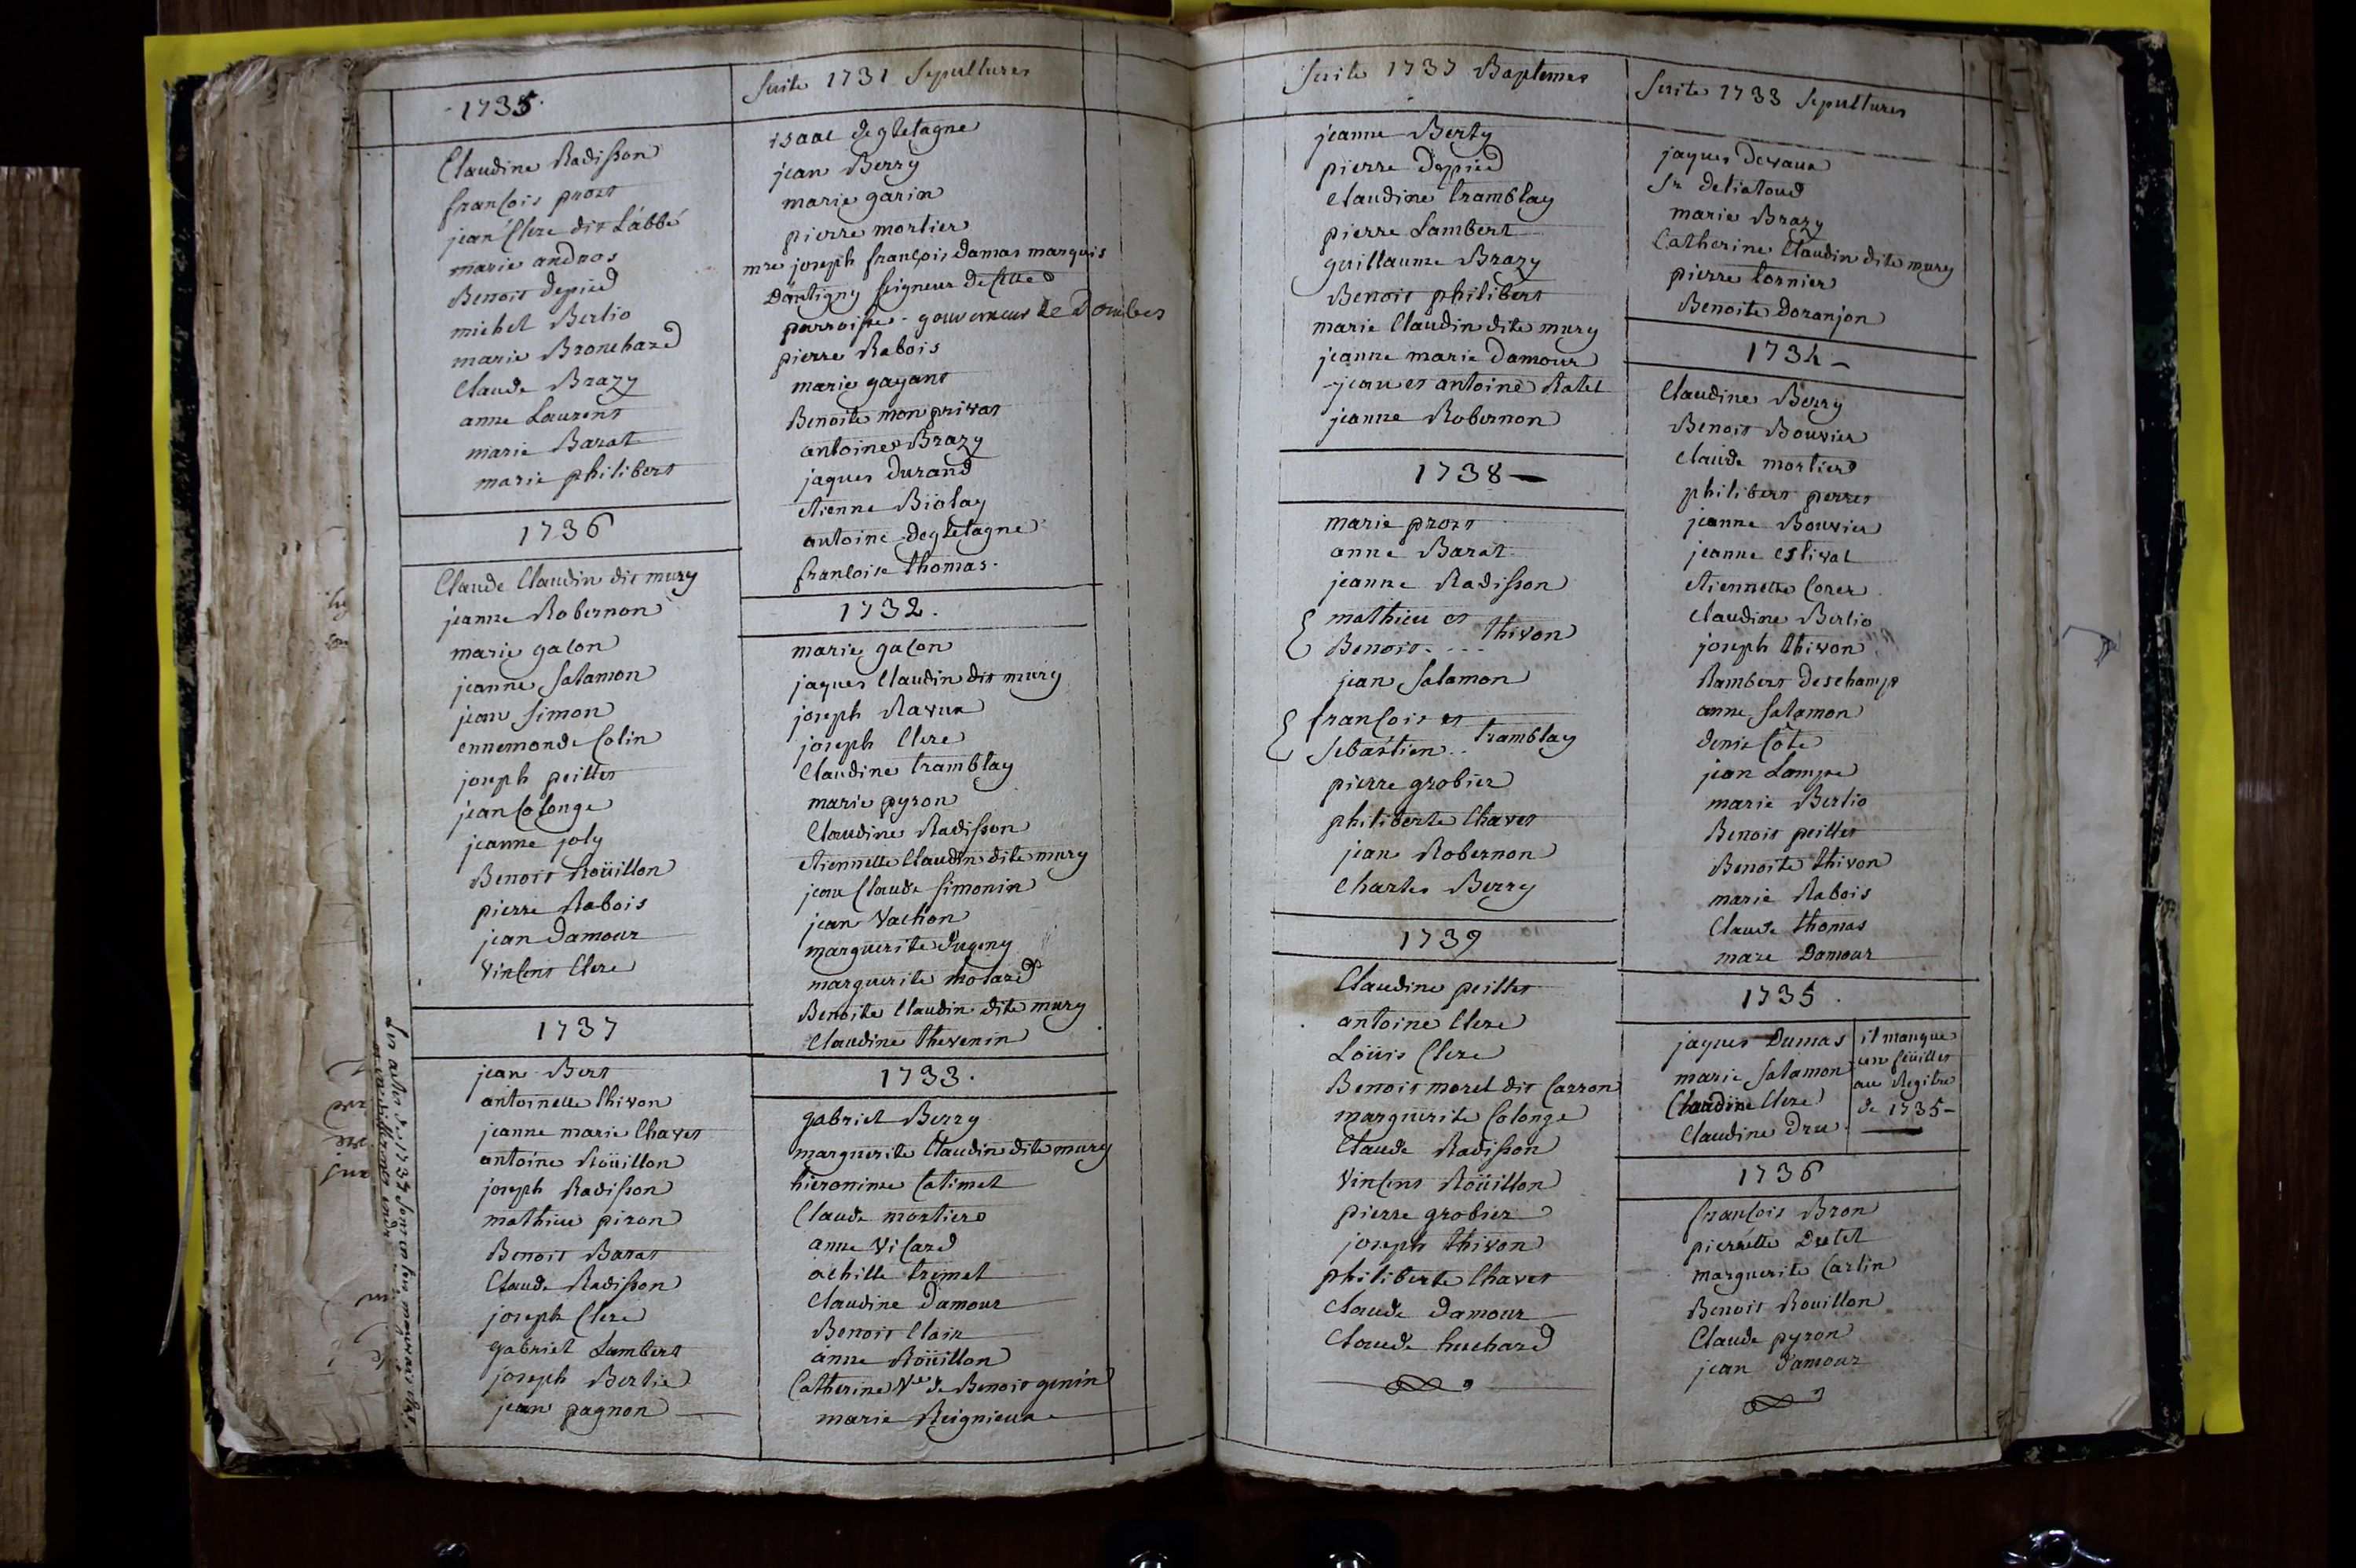 1735.
Claudine Radisson
françois prost
jean Clerc dit Labbé
marie andros
Benoit depied
michel Berlio
marie Bronchard
Claude Brazy
anne Laurent
marie Barat
marie philibert
1736
Claude Claudin dit mury
jeanne Robernon
marie gacon
jeanne Salamon
jean Simon
ennemonde Colin
joseph peillet
jean Colonge
jeanne joly
Benoit Roüillon
pierre Rabois
jean Damour
Vincent Clerc
1737
jean Bert
antoinette thivon
jeanne marie Chavet
antoine Roüillon
joseph Radisson
mathieu piron
Benoit Barat
Claude Radisson
joseph Clerc
gabriel Lambert
joseph Berlie
jean pagnon
Suite 1731 Sepultures
isaac degletagne
jean Berry
marie garin
pierre mortier
mre joseph françois Damas marquis
Dantigny seigneur de cette
parroisse - gouverneur de Dombes
pierre Rabois
marie gayant
Benoite monprivat
antoine Brazy
jaques durand
etienne Biolay
antoine degletagne
françoise thomas.
1732.
marie gacon
jaques Claudin dit mury
joseph Ravux
joseph Clerc
Claudine tramblay
marie pyron
Claudine Radisson
etiennette Claudin dite mury
jean Claude Simonin
jean Vachon
marguerite dugeny
marguerite molard
Benoite Claudin dite mury
Claudine thevenin
1733.
gabriel Berry
marguerite Claudin dite mury
hieronime Catimel
Claude mortier
anne Vicard
achille tremel
Claudine Damour
Benoit Clair
anne Roüillon
Catherine Ve de Benoit genin
marie Reignieux
Suite 1737 Baptemes
jeanne Berty
pierre Depied
Claudine tramblay
pierre Lambert
guillaume Brazy
Benoit philibert
marie Claudin dite mury
jeanne marie Damour
jean et antoine Ratel
jeanne Robernon
1738 -
marie prost
anne Barat
jeanne Radisson
mathieu et
Benoit... thivon
jean Salamon
françois et
Sebastien.. tramblay
pierre grobier
philiberte Chavet
jean Robernon
Charles Berry
1739
Claudine peillet
antoine Clerc
Loüis Clerc
Benoit morel dit Carron
marguerite Colonge
Claude Radisson
Vincent Roüillon
pierre grobier
joseph thivon
philiberte Chavet
Claude Damour
Claude huchard
Suite 1733 Sepultures
jaques Devaux
Sr deliatoud
marie Brazy
Catherine Claudin dite mury
pierre tornier
Benoite Doranjon
1734 -
Claudine Berry
Benoit Bouvier
Claude mortier
philibert perret
jeanne Bouvier
jeanne estival
etiennette Coret
Claudine Berlio
joseph thivon
Rambert deschamp
anne Salamon
denis Cote
jean Lampe
marie Berlio
Benoit peillet
Benoite thivon
marie Rabois
Claude thomas
marc Damour
1735.
jaques Dumas
marie Salamon
Claudine Clerc
Claudine Dru.
il manque
un feüillet
au Regitre
de 1735 -
1736
françois Bron
pierrette Dutel
marguerite Carlin
Benoit Rouillon
Claude pyron
jean Damour